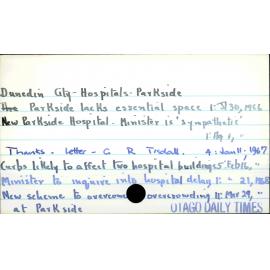 Dunedin City - Hospitals - Parkside
The Parkside lacks essential space 1: Jl 30, 1966
New Parkside Hospital. Minister is 'sympathetic'
1: Ag 1, "
Thanks. Letter - G R Tisdall. 4: Jan 11, 1967
Curbs likely to affect two hospital buildings 5: Feb 16, "
Minister to inquire into hospital delay 1: " 21, 1968
New scheme to overcome overcrowding 11: Mar 29, "
at Parkside
OTAGO DAILY TIMES